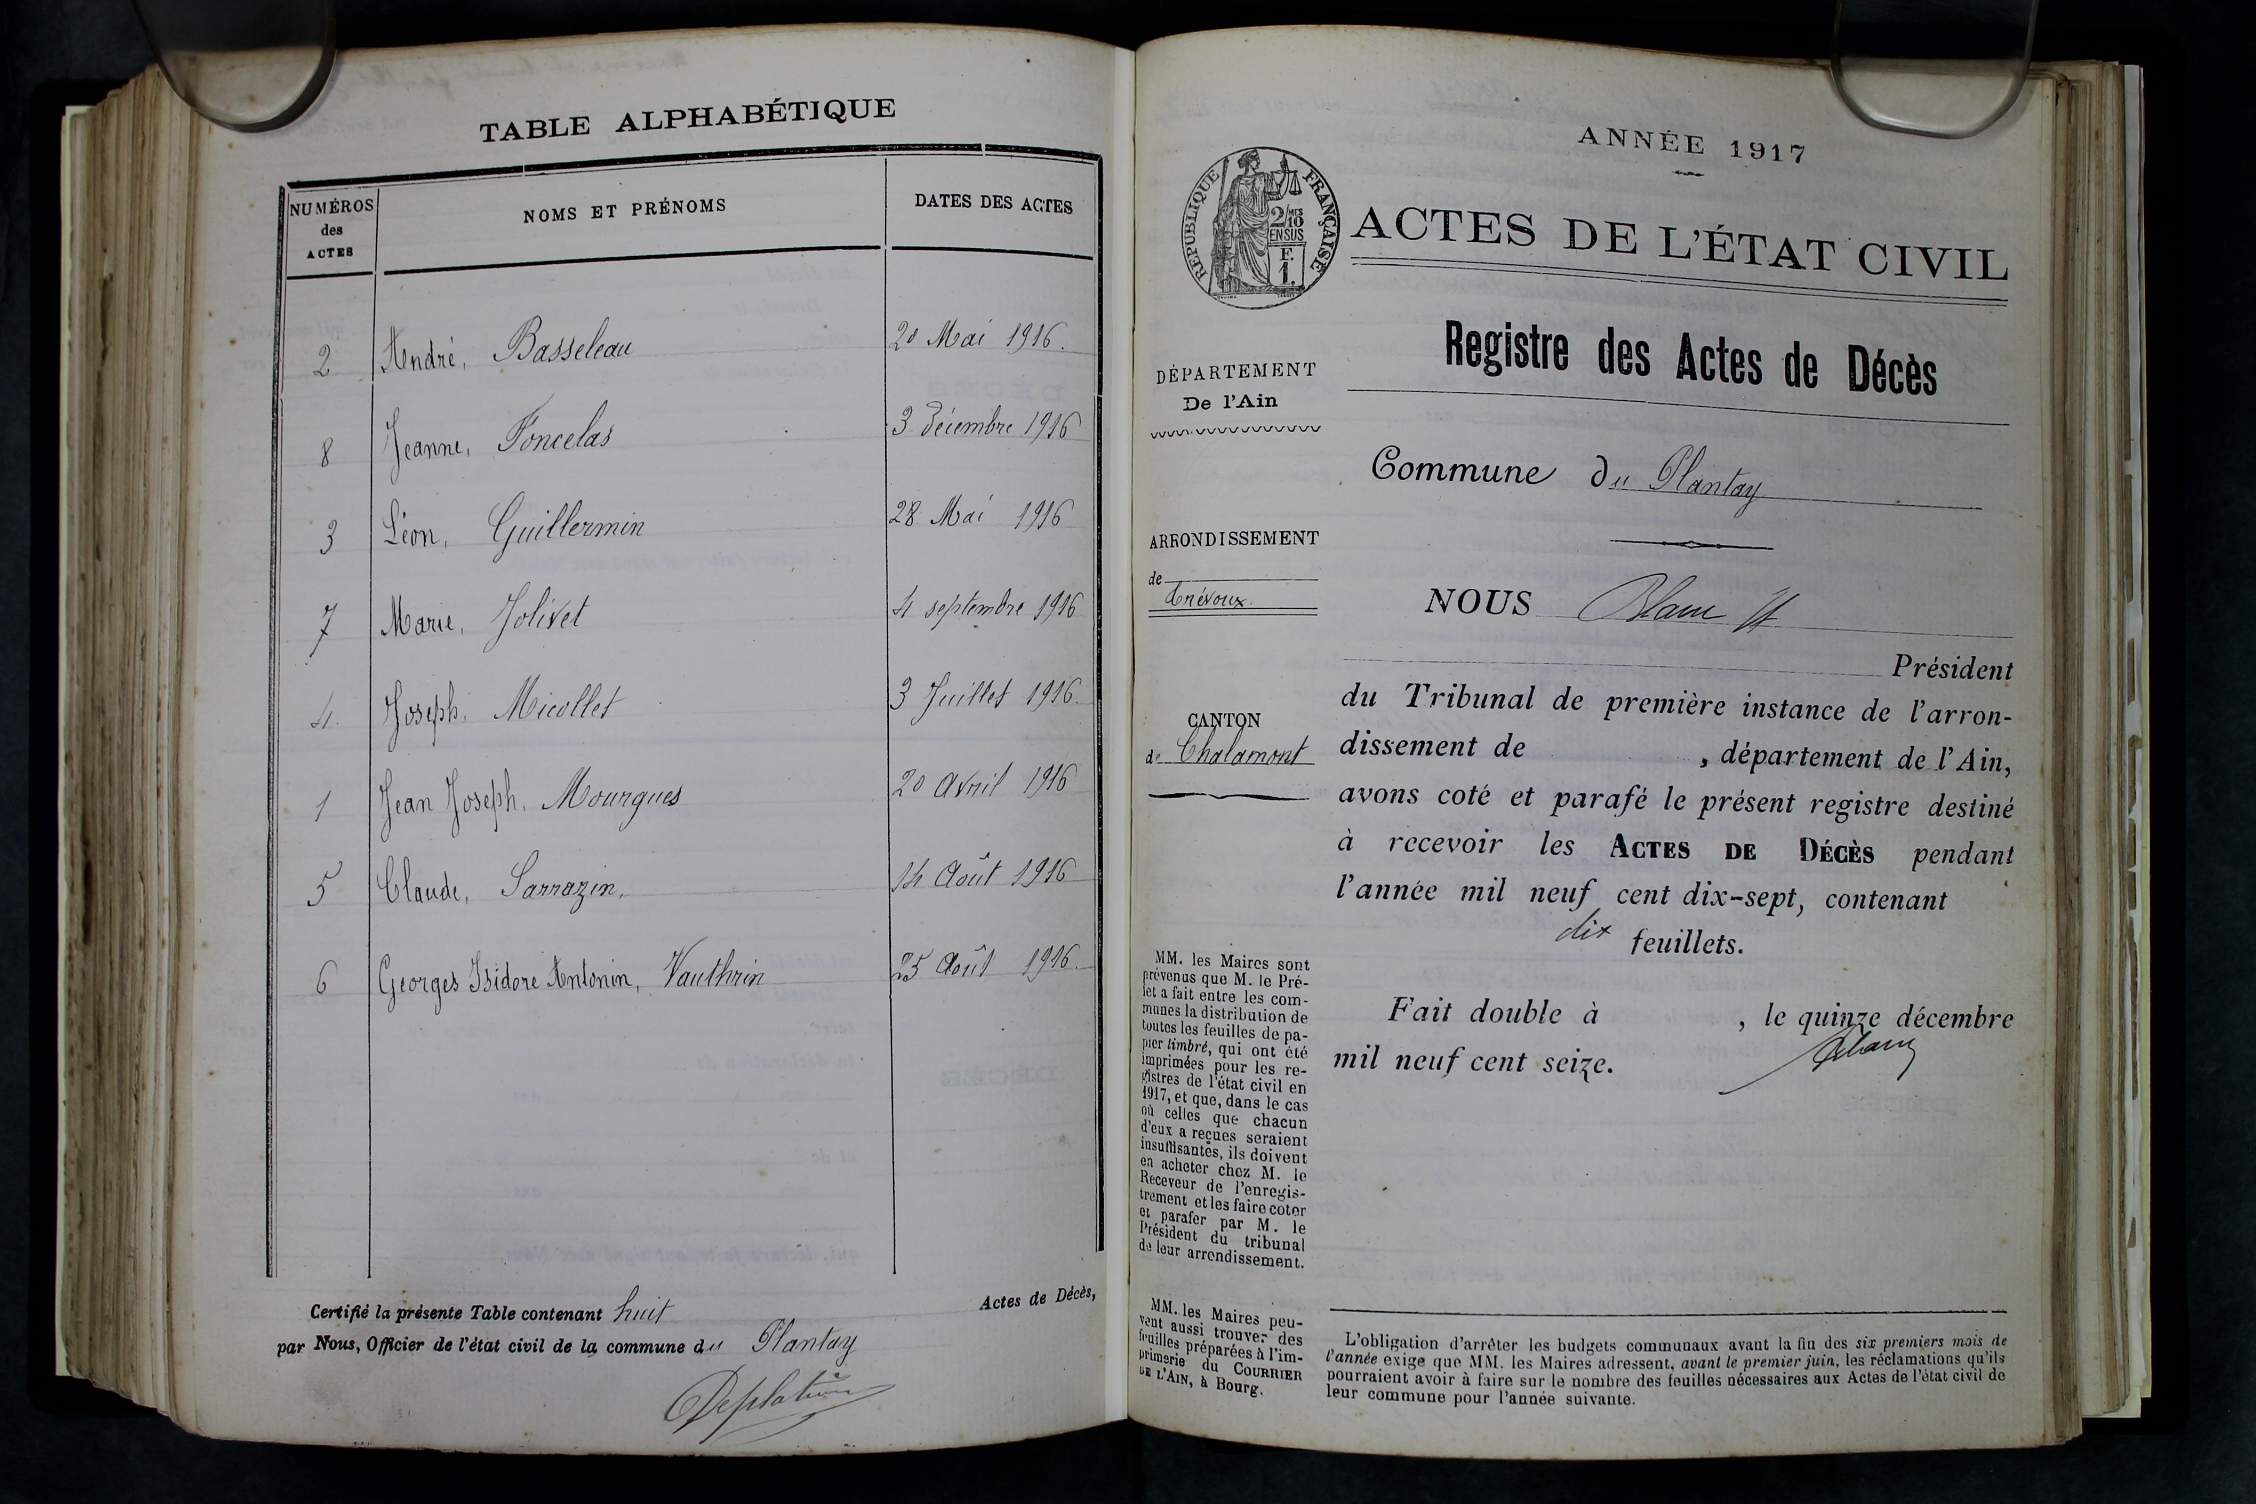 TABLE ALPHABÉTIQUE
NUMÉROS
des
ACTES
NOMS ET PRÉNOMS
DATES DES ACTES
2 André, Basseleau 20 Mai 1916.
8 Jeanne, Foncelas 3 décembre 1916
3 Léon, Guillermin 28 Mai 1916
7 Marie, Jolivet 4 septembre 1916
4. Joseph, Micollet 3 Juillet 1916.
1 Jean Joseph, Mourgues 20 avril 1916
5 Claude, Sarrazin, 14 Août 1916
6 Georges Isidore Antonin, Vauthrin 25 Août 1916.
Certifié la présente Table contenant huit Actes de Décès,
par Nous, Officier de l'état civil de la commune du Plantay
ANNÉE 1917
RÉPUBLIQUE FRANÇAISE
2/10 MES
EN SUS
F.
1.
ACTES DE L'ÉTAT CIVIL
Registre des Actes de Décès
DÉPARTEMENT
De l'Ain
Commune du Plantay
ARRONDISSEMENT
de
Trévoux.
NOUS
Président
du Tribunal de première instance de l'arron-
dissement de , département de l'Ain,
avons coté et parafé le présent registre destiné
à recevoir les ACTES DE DÉCÈS pendant
l'année mil neuf cent dix-sept, contenant
dix feuillets.
Fait double à , le quinze décembre
mil neuf cent seize.
CANTON
de Chalamont
MM. les Maires sont
prévenus que M. le Pré-
fet a fait entre les com-
munes la distribution de
toutes les feuilles de pa-
pier timbré, qui ont été
imprimées pour les re-
gistres de l'état civil en
1917, et que, dans le cas
où celles que chacun
d'eux a reçues seraient
insuffisantes, ils doivent
en acheter chez M. le
Receveur de l'enregis-
trement et les faire coter
et parafer par M. le
Président du tribunal
de leur arrondissement.
MM. les Maires peu-
vent aussi trouver des
feuilles préparées à l'im-
primerie du COURRIER
DE L'AIN, à Bourg.
L'obligation d'arrêter les budgets communaux avant la fin des six premiers mois de
l'année exige que MM. les Maires adressent, avant le premier juin, les réclamations qu'ils
pourraient avoir à faire sur le nombre des feuilles nécessaires aux Actes de l'état civil de
leur commune pour l'année suivante.